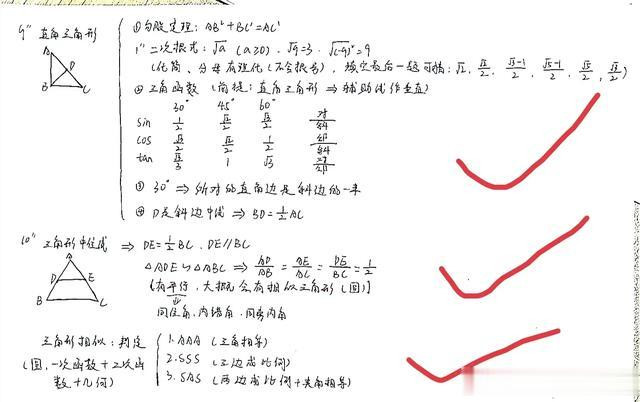 9° 直角三角形
A
D
B
C
① 勾股定理: AB²+BC²=AC²
1° 二次根式: √a (a≥0). √9=3. √(-9)²=9
(化简、分母有理化 (不含根号), 填空最后一题可猜: √2, √2/2, (√3-1)/2, (√5-1)/2, √5/2, √3/2)
② 三角函数 (前提: 直角三角形 ⇒ 辅助线作垂直)
30° 45° 60°
sin 1/2 √2/2 √3/2 对/斜
cos √3/2 √2/2 1/2 邻/斜
tan √3/3 1 √3 对/邻
③ 30° ⇒ 所对的直角边是斜边的一半
④ D是斜边中线 ⇒ BD=1/2 AC
10° 三角形中位线 ⇒ DE=1/2 BC. DE∥BC
A
D
E
B
C
△ADE∽△ABC ⇒ AD/AB = AE/AC = DE/BC = 1/2
[有平行, 大概会有相似三角形 (圆)]
同位角, 内错角, 同旁内角
三角形相似: 判定
(圆, 一次函数+二次函数+几何)
1. AAA (三角相等)
2. SSS (三边成比例)
3. SAS (两边成比例+夹角相等)